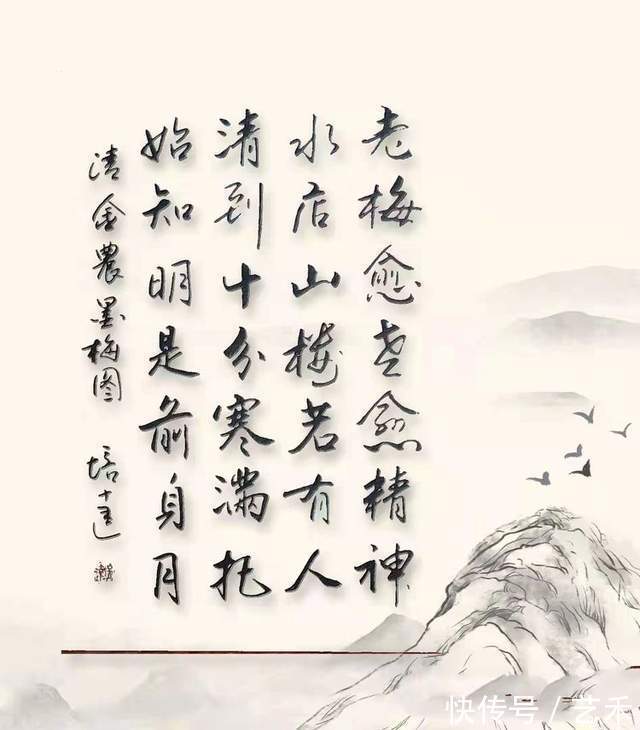 老梅愈老愈精神
水店山楼若有人
清到十分寒满把
始知明是前身月
清金農墨梅图 培
快传号/艺禾